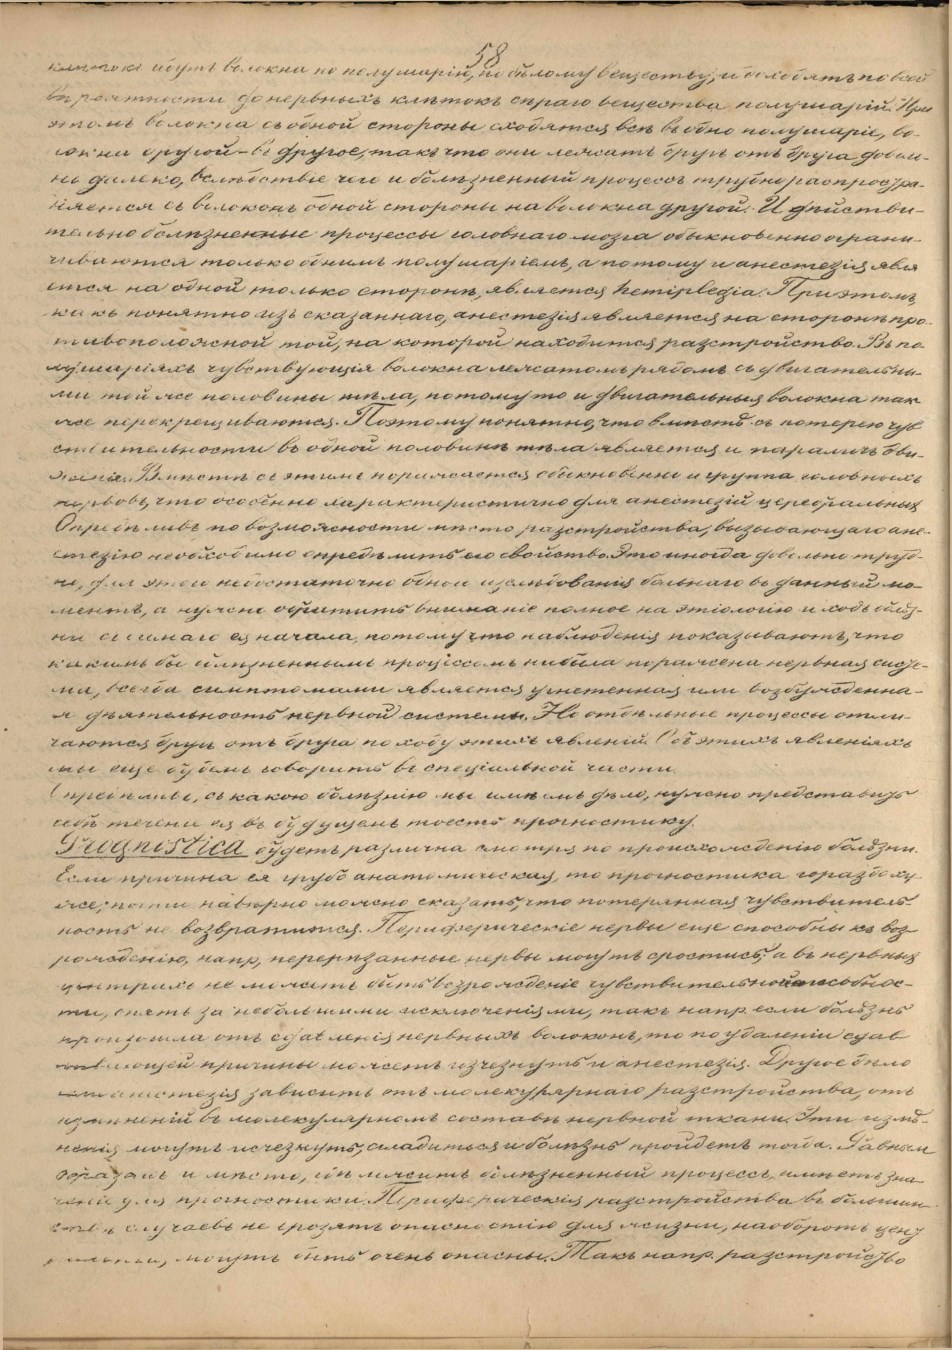 58
идутъ волокна по полушарій, по бѣлому веществу, и доходятъ по всей
вѣроятности до нервныхъ клѣтокъ сѣраго вещества полушарій. При
этомъ волокна съ одной стороны сходятся всѣ въ одно полушаріе, во-
локна другой – въ другое, такъ что они лежатъ другъ отъ друга доволь-
но далеко, вслѣдствіе чего и болѣзненный процессъ трудно распростра-
няется съ волоконъ одной стороны на волокна другой. И дѣйстви-
тельно болѣзненные процессы головнаго мозга обыкновенно ограни-
чиваются только однимъ полушаріемъ, а потому и анестезія явля
ется на одной только сторонѣ, является hemiplegia. При этомъ,
какъ понятно изъ сказаннаго, анестезія является на сторонѣ про-
тивоположной той, на которой находится разстройство. Въ по
лушаріяхъ чувствующія волокна лежатъ рядомъ съ двигательны-
ми той же половины тѣла, потому то и двигательныя волокна так
же перекрещиваются. Поэтому понятно, что вмѣстѣ съ потерею чув
ствительности въ одной половинѣ тѣла является и параличъ дви-
женія. Вмѣстѣ съ этимъ поражается обыкновенно и группа головныхъ
нервовъ, что особенно характеристично для анестезій церебральныхъ
Опредѣливъ по возможности мѣсто разстройства, вызывающаго ане-
стезію необходимо опредѣлить его свойство. Это иногда довольно труд-
но, для этого недостаточно одного изслѣдованія больнаго въ данный мо-
ментъ, а нужно обратить вниманіе полное на этіологію и ходъ болѣз-
ни съ самаго ея начала, потому что наблюденія показываютъ, что
какимъ бы болѣзненнымъ процессомъ ни была поражена нервная систе-
ма, всегда симптомами является угнетенная или возбужденна-
я дѣятельность нервной системы. Но отдѣльные процессы отли-
чаются другъ отъ друга по ходу этихъ явленій. Объ этихъ явленіяхъ
мы еще будемъ говорить въ спеціальной части.
Опредѣливъ, съ какою болѣзнію мы имѣемъ дѣло, нужно представить
себѣ теченіе ея въ будущемъ тоесть прогностику.
Prognostica будетъ различна смотря по происхожденію болѣзни.
Если причина ея грубо анатомическая, то прогностика гораздо ху-
же; почти навѣрно можно сказать, что потерянная чувствитель
ность не возвратится. Периферическіе нервы еще способны къ воз
рожденію, напр, перерѣзанные нервы могутъ сростись, а въ нервныхъ
центрахъ не можетъ быть возрожденіе чувствительной способнос-
ти, опять за небольшими исключеніями, такъ напр если болѣзнь
произошла отъ сдавленія нервныхъ волоконъ, то по удаленіи сдав
ливающей причины можетъ изчезнуть и анестезія. Другое дѣло
анестезія зависитъ отъ молекулярнаго разстройства, отъ
измѣненій въ молекулярномъ составѣ нервной ткани. Эти измѣ-
ненія могутъ исчезнуть, сладиться и болѣзнь пройдетъ тогда. Равнымъ
образомъ и мѣсто, гдѣ лежитъ болѣзненный процессъ, имѣетъ зна-
ченіе для прогностики. Периферическія разстройства въ большин-
ствѣ случаевъ не грозятъ опасностію для жизни, наоборотъ цент
ральныя, могутъ быть очень опасны. Такъ напр. разстройство